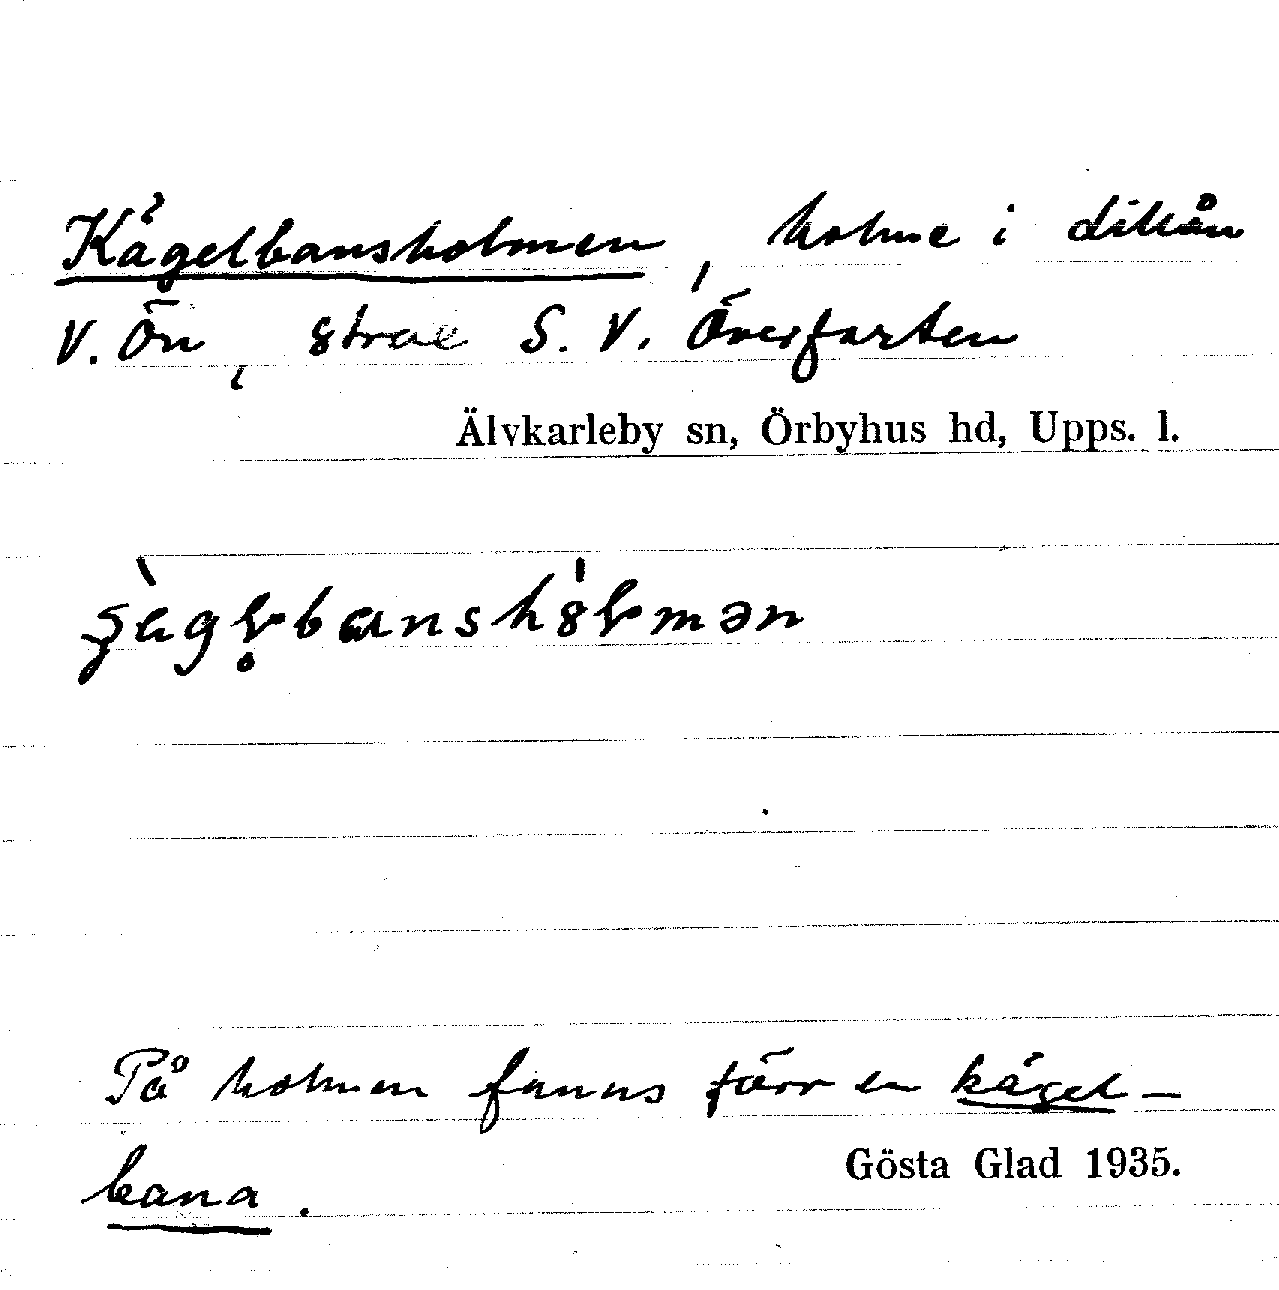 Kägelbansholmen, holme i Dalälven
V. Ön, strax S. V. Överfarten
Älvkarleby sn, Örbyhus hd, Upps. l.
På holmen fanns förr en kägel-
bana.
Gösta Glad 1935.